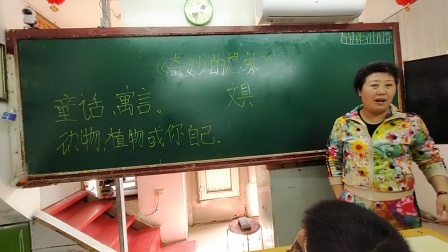 《奇妙的想象》
童话、寓言。
文具
动物,植物或你自己。